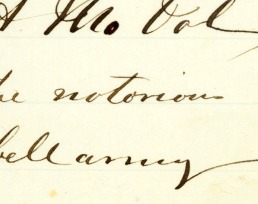 A Mo Vol
he notorious
bell army